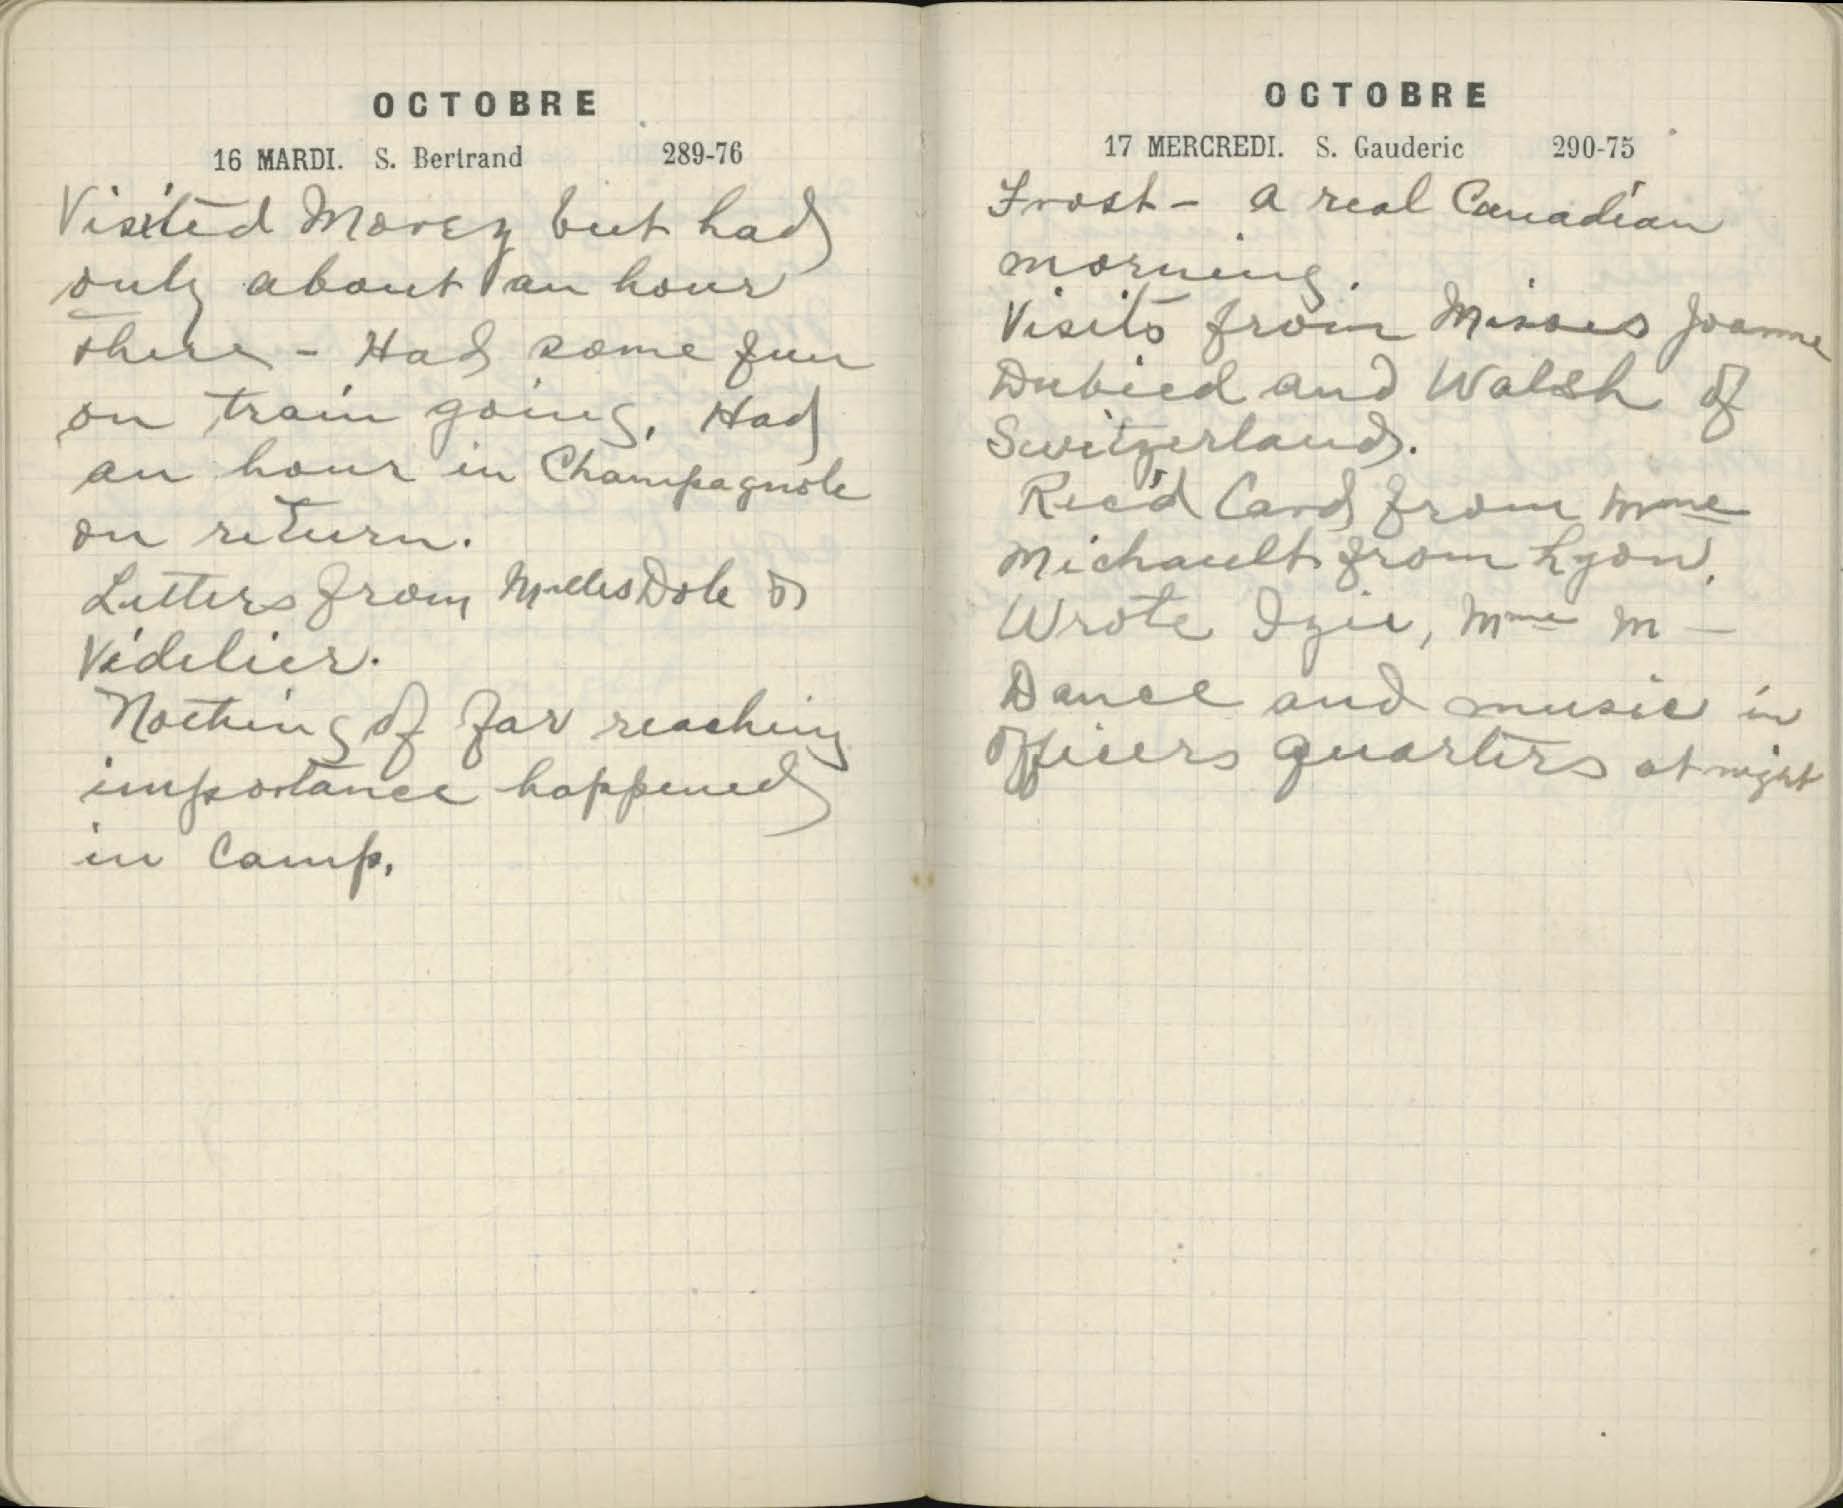 OCTOBRE
16 MARDI. S. Bertrand 289-76
Visited Morez but had
only about an hour
there - Had some fun
on train going. Had
an hour in Champagnole
on return.
Letters from Mlles Dole &
Videlier.
Nothing of far reaching
importance happened
in Camp.
OCTOBRE
17 MERCREDI. S. Gauderic 290-75
Frost - a real Canadian
morning.
Visits from Misses Joanne
Dubied and Walsh of
Switzerland.
Rec'd Card from Mme
Michault from Lyon.
Wrote Izie, Mme M -
Dance and music in
Officers quarters at night